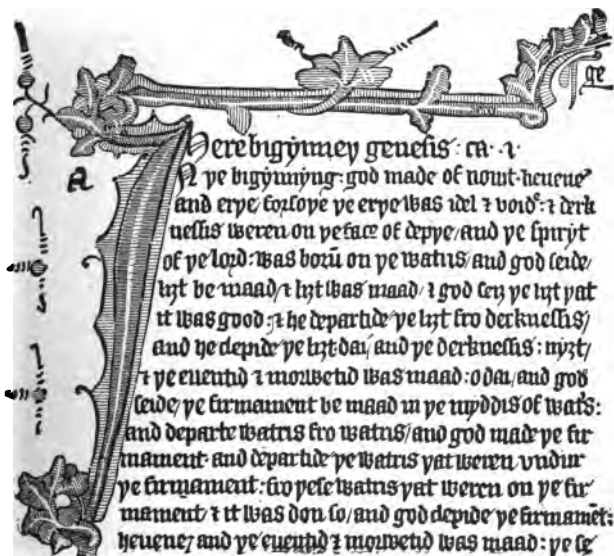 ge
Here bigẏnney genesis : ca · i ·
a
N ye bigẏnẏng: god made of nouȝt heuene
and erye forsoye ye erye was idel ⁊ void: ⁊ derk
nessis weren on ye face of depye/ and ye spirẏt
of ye lord: was borū on ye watris/ and god seide/
liȝt be maad/ ⁊ liȝt was maad/ ⁊ god seȝ ye liȝt yat
it was good: ⁊ he departide ye liȝt fro derknessis/
and he clepide ye liȝt: dai/ and ye derknessis: nyȝt/
⁊ ye euentid ⁊ morwetid was maad: o dai/ and god
seide/ ye firmament be maad in ye mẏddis of wat's:
and departe watris fro watris/ and god made ye fir
mament· and departide ye watris yat weren vndur
ye firmament: fro yese watris yat weren on ye fir
mament· ⁊ it was don so/ and god clepide ye firmamēt:
heuene/ and ye euentid ⁊ morwetid was maad: ye se